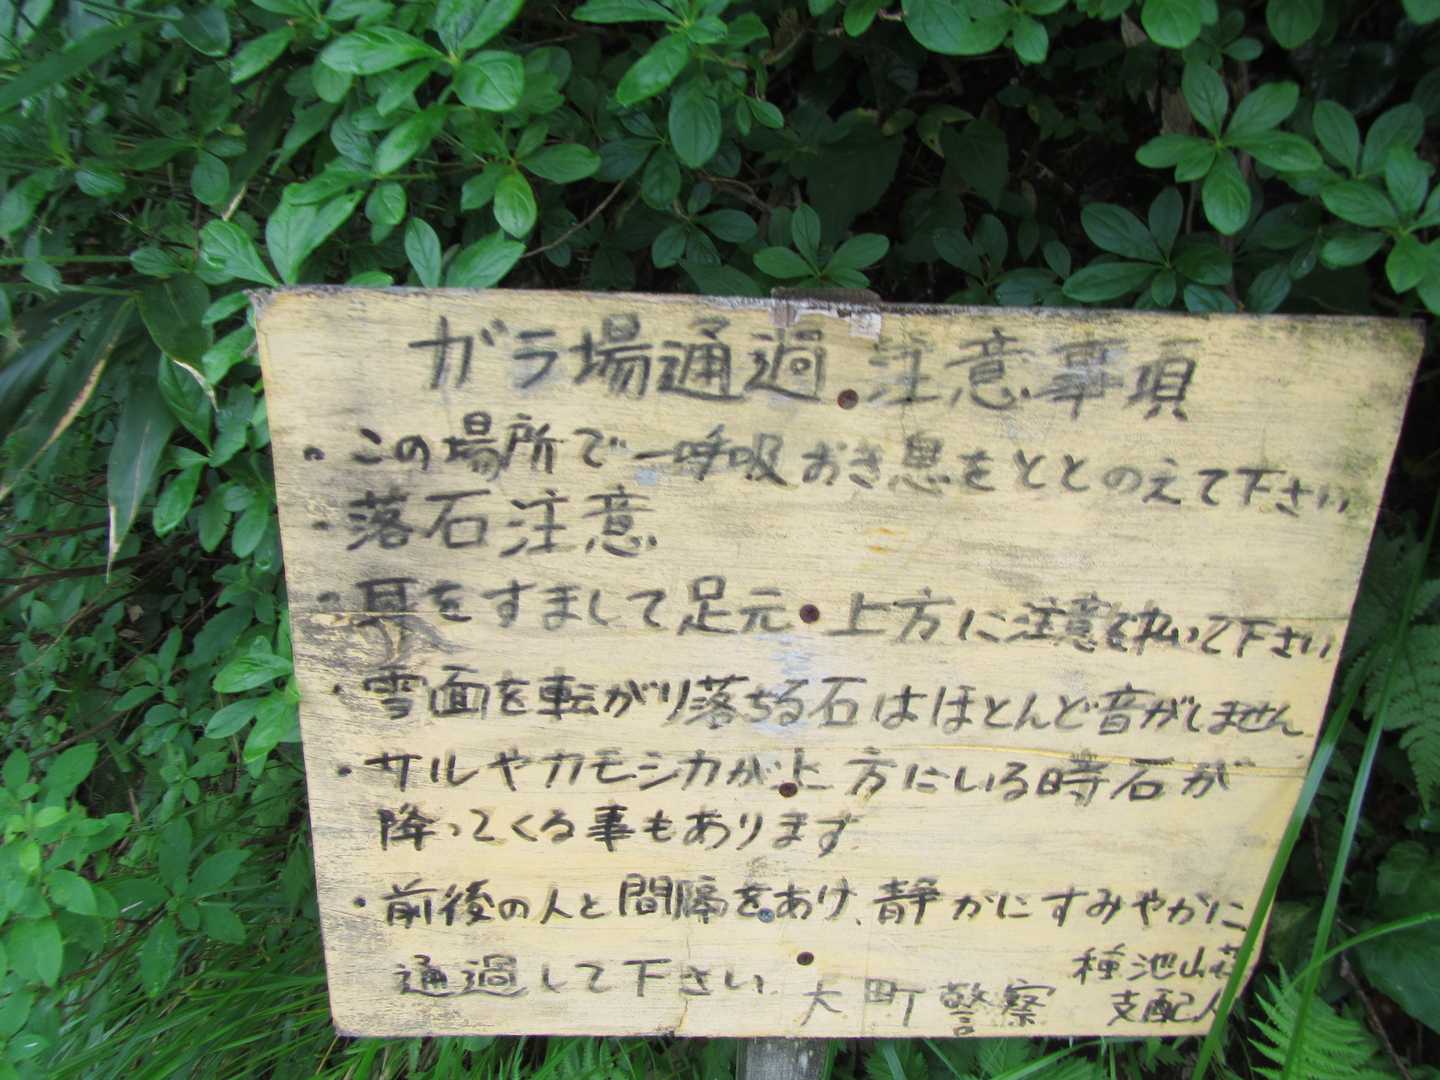 ガラ場通過 注意事項
・この場所で一呼吸おき息をととのえて下さい
・落石注意
・耳をすまして足元、上方に注意を払いて下さい
・雪面を転がり落ちる石はほとんど音がしません
・サルやカモシカが上方にいる時石が
降ってくる事もあります。
・前後の人と間隔をあけ、静かにすみやかに
通過して下さい。
種池山荘
大町警察 支配人